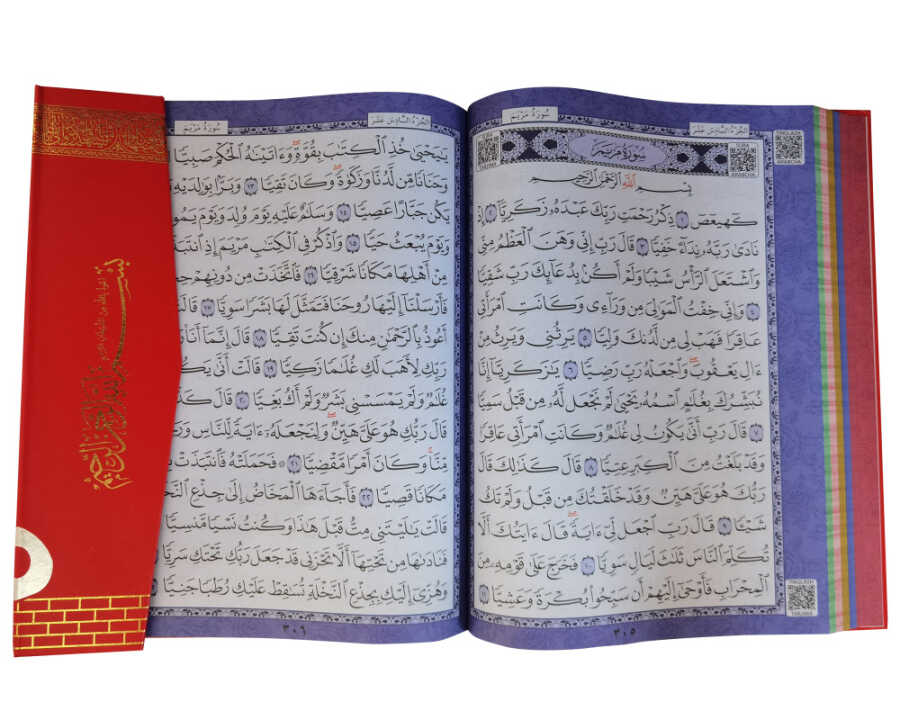 سُورَةُ مَرْيَمَ
الجُزْءُ السَّادِسَ عَشَرَ
سُورَةُ مَرْيَمَ
بِسْمِ اللَّهِ الرَّحْمَٰنِ الرَّحِيمِ
كٓهيعٓصٓ ١ ذِكْرُ رَحْمَتِ رَبِّكَ عَبْدَهُۥ زَكَرِيَّآ ٢ إِذْ
نَادَىٰ رَبَّهُۥ نِدَآءً خَفِيًّا ٣ قَالَ رَبِّ إِنِّى وَهَنَ ٱلْعَظْمُ مِنِّى
وَٱشْتَعَلَ ٱلرَّأْسُ شَيْبًا وَلَمْ أَكُنۢ بِدُعَآئِكَ رَبِّ شَقِيًّا
٤ وَإِنِّى خِفْتُ ٱلْمَوَٰلِىَ مِن وَرَآءِى وَكَانَتِ ٱمْرَأَتِى
عَاقِرًا فَهَبْ لِى مِن لَّدُنكَ وَلِيًّا ٥ يَرِثُنِى وَيَرِثُ مِنْ
ءَالِ يَعْقُوبَ ۖ وَٱجْعَلْهُ رَبِّ رَضِيًّا ٦ يَٰزَكَرِيَّآ إِنَّا
نُبَشِّرُكَ بِغُلَٰمٍ ٱسْمُهُۥ يَحْيَىٰ لَمْ نَجْعَل لَّهُۥ مِن قَبْلُ سَمِيًّا
٧ قَالَ رَبِّ أَنَّىٰ يَكُونُ لِى غُلَٰمٌ وَكَانَتِ ٱمْرَأَتِى عَاقِرًا
وَقَدْ بَلَغْتُ مِنَ ٱلْكِبَرِ عِتِيًّا ٨ قَالَ كَذَٰلِكَ قَالَ
رَبُّكَ هُوَ عَلَىَّ هَيِّنٌ وَقَدْ خَلَقْتُكَ مِن قَبْلُ وَلَمْ تَكُ
شَيْـًٔا ٩ قَالَ رَبِّ ٱجْعَل لِّىٓ ءَايَةً ۚ قَالَ ءَايَتُكَ أَلَّا
تُكَلِّمَ ٱلنَّاسَ ثَلَٰثَ لَيَالٍ سَوِيًّا ١٠ فَخَرَجَ عَلَىٰ قَوْمِهِۦ مِنَ
ٱلْمِحْرَابِ فَأَوْحَىٰٓ إِلَيْهِمْ أَن سَبِّحُوا۟ بُكْرَةً وَعَشِيًّا ١١
٣٠٥
ARABCHA
ARABCHA
الجُزْءُ السَّادِسَ عَشَرَ
سُورَةُ مَرْيَمَ
يَٰيَحْيَىٰ خُذِ ٱلْكِتَٰبَ بِقُوَّةٍ ۖ وَءَاتَيْنَٰهُ ٱلْحُكْمَ صَبِيًّا
وَحَنَانًا مِّن لَّدُنَّا وَزَكَوٰةً ۖ وَكَانَ تَقِيًّا ١٣ وَبَرًّۢا بِوَٰلِدَيْهِ
يَكُن جَبَّارًا عَصِيًّا ١٤ وَسَلَٰمٌ عَلَيْهِ يَوْمَ وُلِدَ وَيَوْمَ يَمُو
وَيَوْمَ يُبْعَثُ حَيًّا ١٥ وَٱذْكُرْ فِى ٱلْكِتَٰبِ مَرْيَمَ إِذِ ٱنتَبَذَ
مِنْ أَهْلِهَا مَكَانًا شَرْقِيًّا ١٦ فَٱتَّخَذَتْ مِن دُونِهِمْ
فَأَرْسَلْنَآ إِلَيْهَا رُوحَنَا فَتَمَثَّلَ لَهَا بَشَرًا سَوِيًّا ١٧ قَالَتْ
أَعُوذُ بِٱلرَّحْمَٰنِ مِنكَ إِن كُنتَ تَقِيًّا ١٨ قَالَ إِنَّمَآ أَنَا۠
رَبِّكِ لِأَهَبَ لَكِ غُلَٰمًا زَكِيًّا ١٩ قَالَتْ أَنَّىٰ يَكُ
غُلَٰمٌ وَلَمْ يَمْسَسْنِى بَشَرٌ وَلَمْ أَكُ بَغِيًّا ٢٠ قَالَ كَذَ
قَالَ رَبُّكِ هُوَ عَلَىَّ هَيِّنٌ ۖ وَلِنَجْعَلَهُۥٓ ءَايَةً لِّلنَّاسِ وَرَ
مِّنَّا ۚ وَكَانَ أَمْرًا مَّقْضِيًّا ٢١ فَحَمَلَتْهُ فَٱنتَبَذَتْ
مَكَانًا قَصِيًّا ٢٢ فَأَجَآءَهَا ٱلْمَخَاضُ إِلَىٰ جِذْعِ ٱلنَّخْ
قَالَتْ يَٰلَيْتَنِى مِتُّ قَبْلَ هَٰذَا وَكُنتُ نَسْيًا مَّنسِيًّا
فَنَادَىٰهَا مِن تَحْتِهَآ أَلَّا تَحْزَنِى قَدْ جَعَلَ رَبُّكِ تَحْتَكِ سَرِيًّا
وَهُزِّىٓ إِلَيْكِ بِجِذْعِ ٱلنَّخْلَةِ تُسَٰقِطْ عَلَيْكِ رُطَبًا جَنِيًّا
٣٠٦